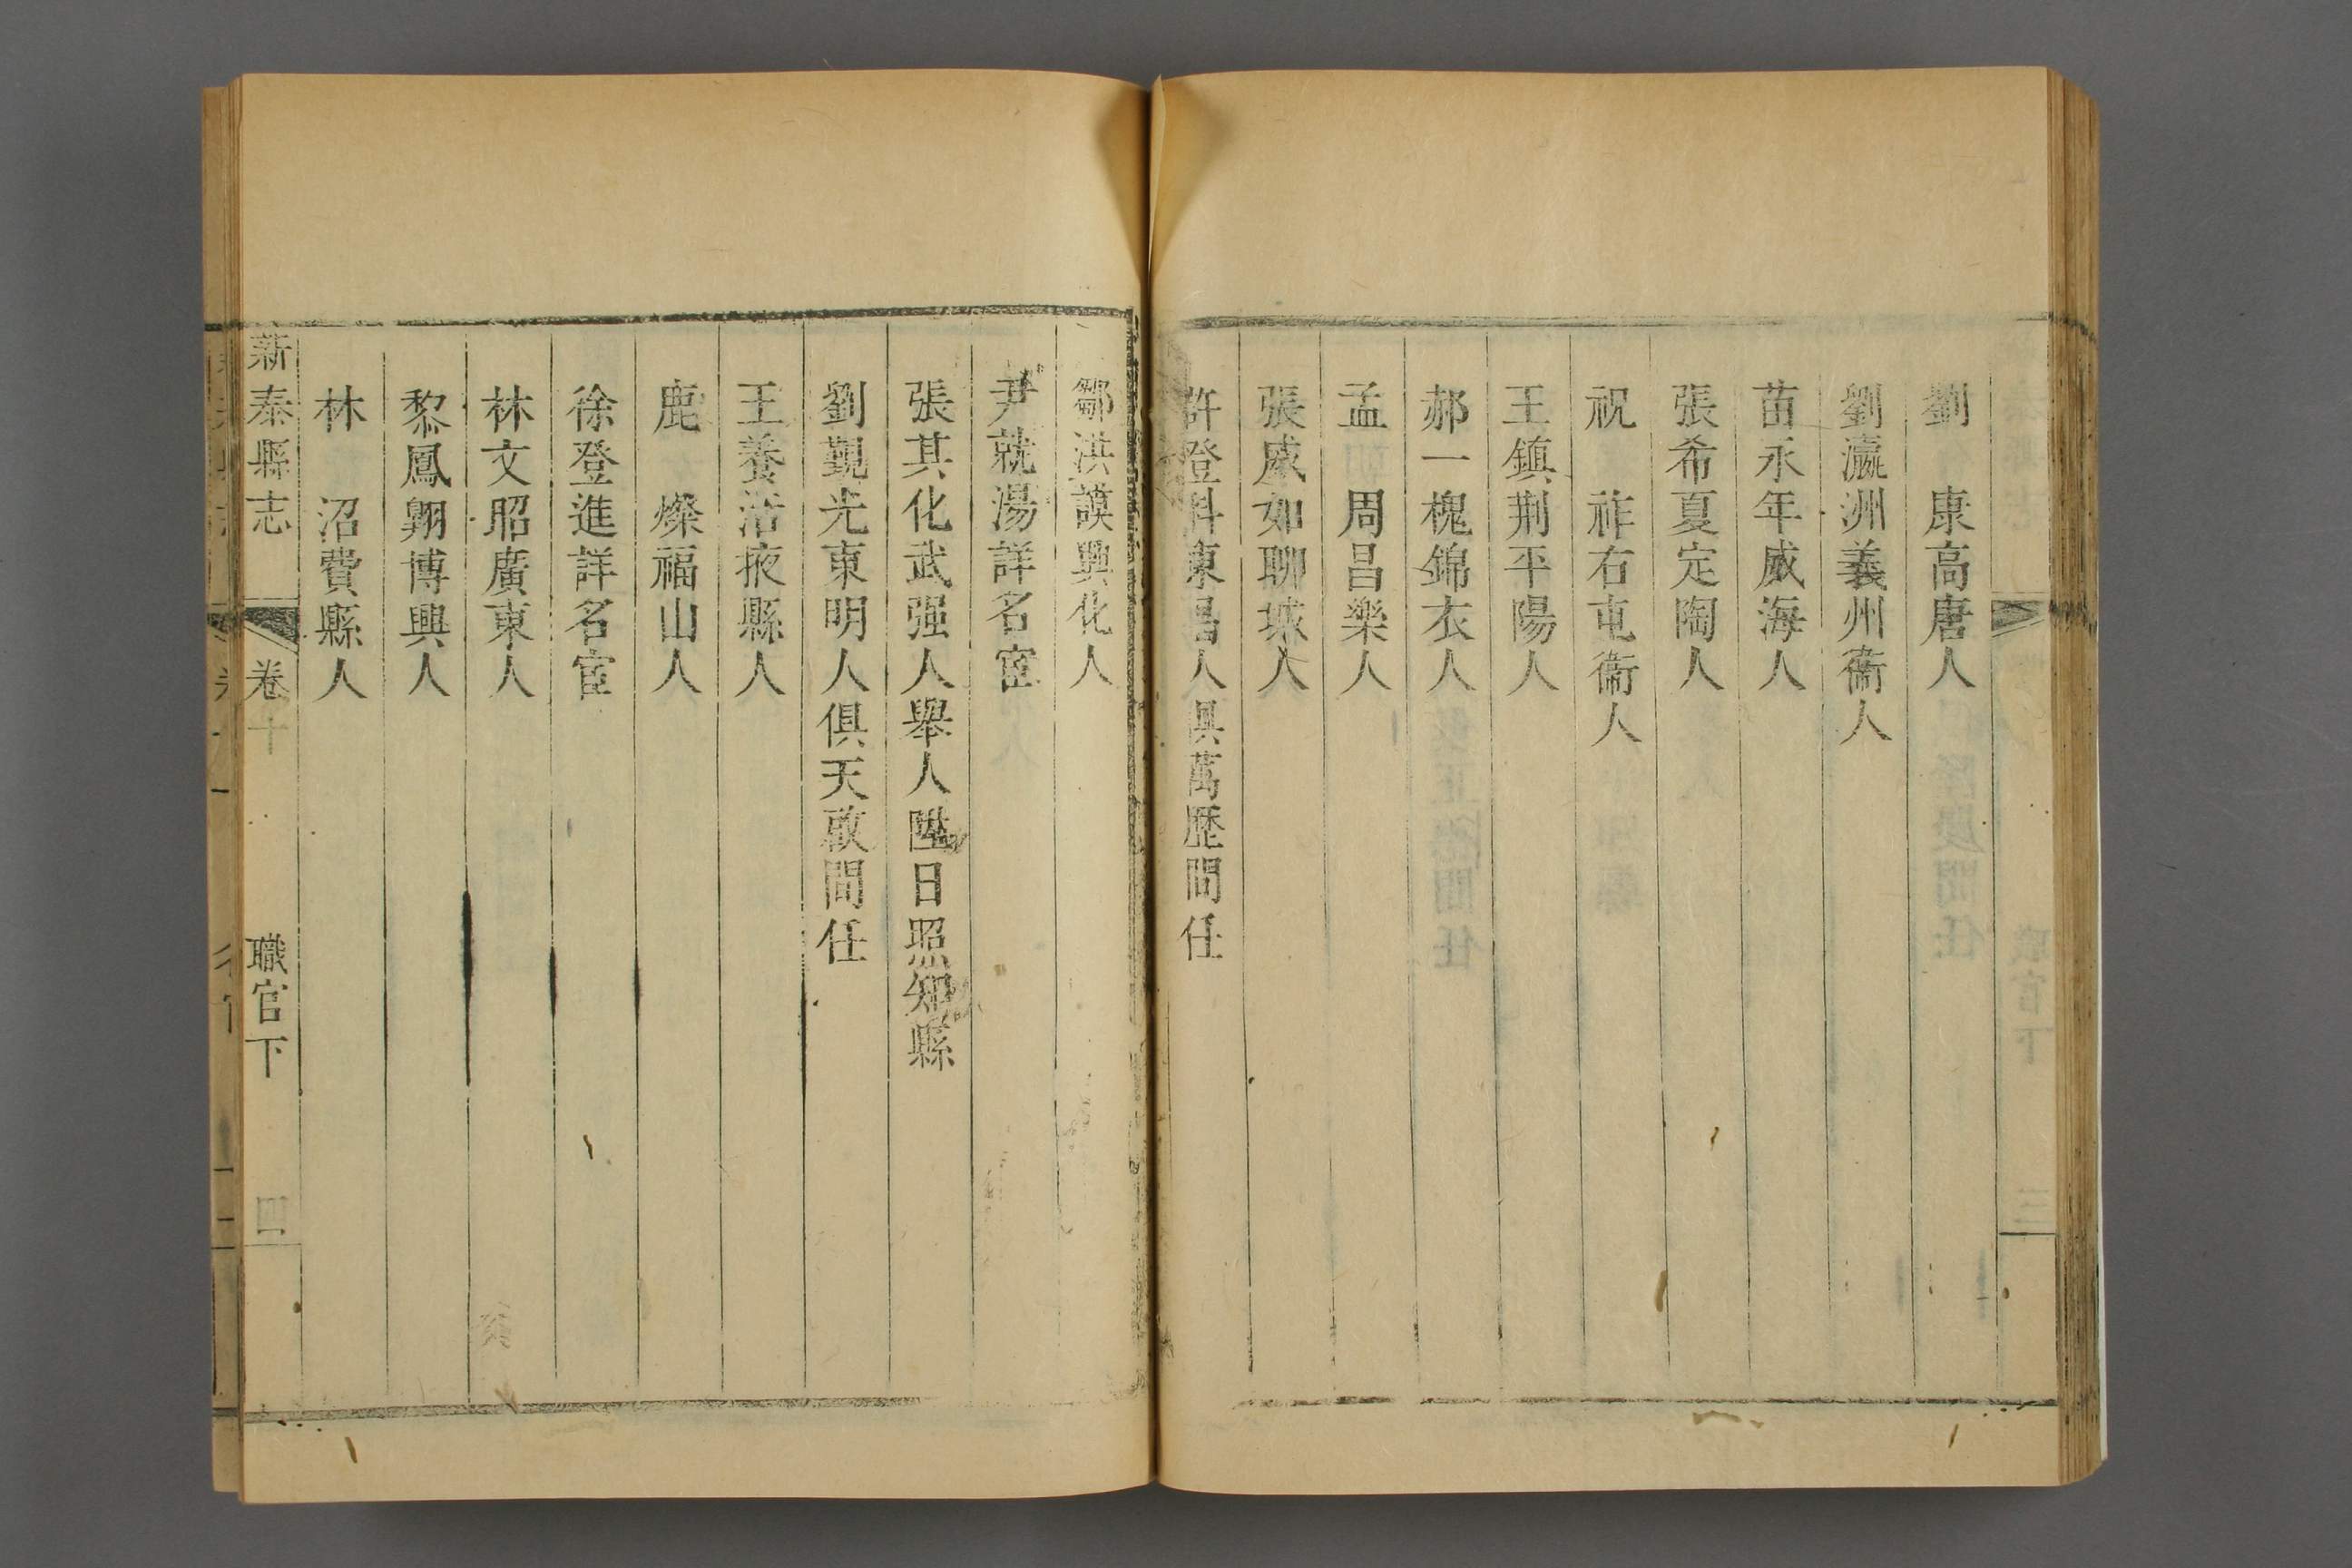 劉　康高唐人
劉瀛洲義州衞人
苗永年威海人
張希夏定陶人
祝　祚右屯衞人
王鎮荆平陽人
郝一槐錦衣人
孟　周昌樂人
張咸如聊城人
許登科東昌人俱萬歷間任
職官下
三
鄒洪謨興化人
尹就湯詳名宦
張其化武强人舉人陞日照知縣
劉觀光東明人俱天啟間任
王養浩掖縣人
鹿　燦福山人
徐登進詳名宦
林文昭廣東人
黎鳳翔博興人
林　沼費縣人
新泰縣志　卷十　職官下　四